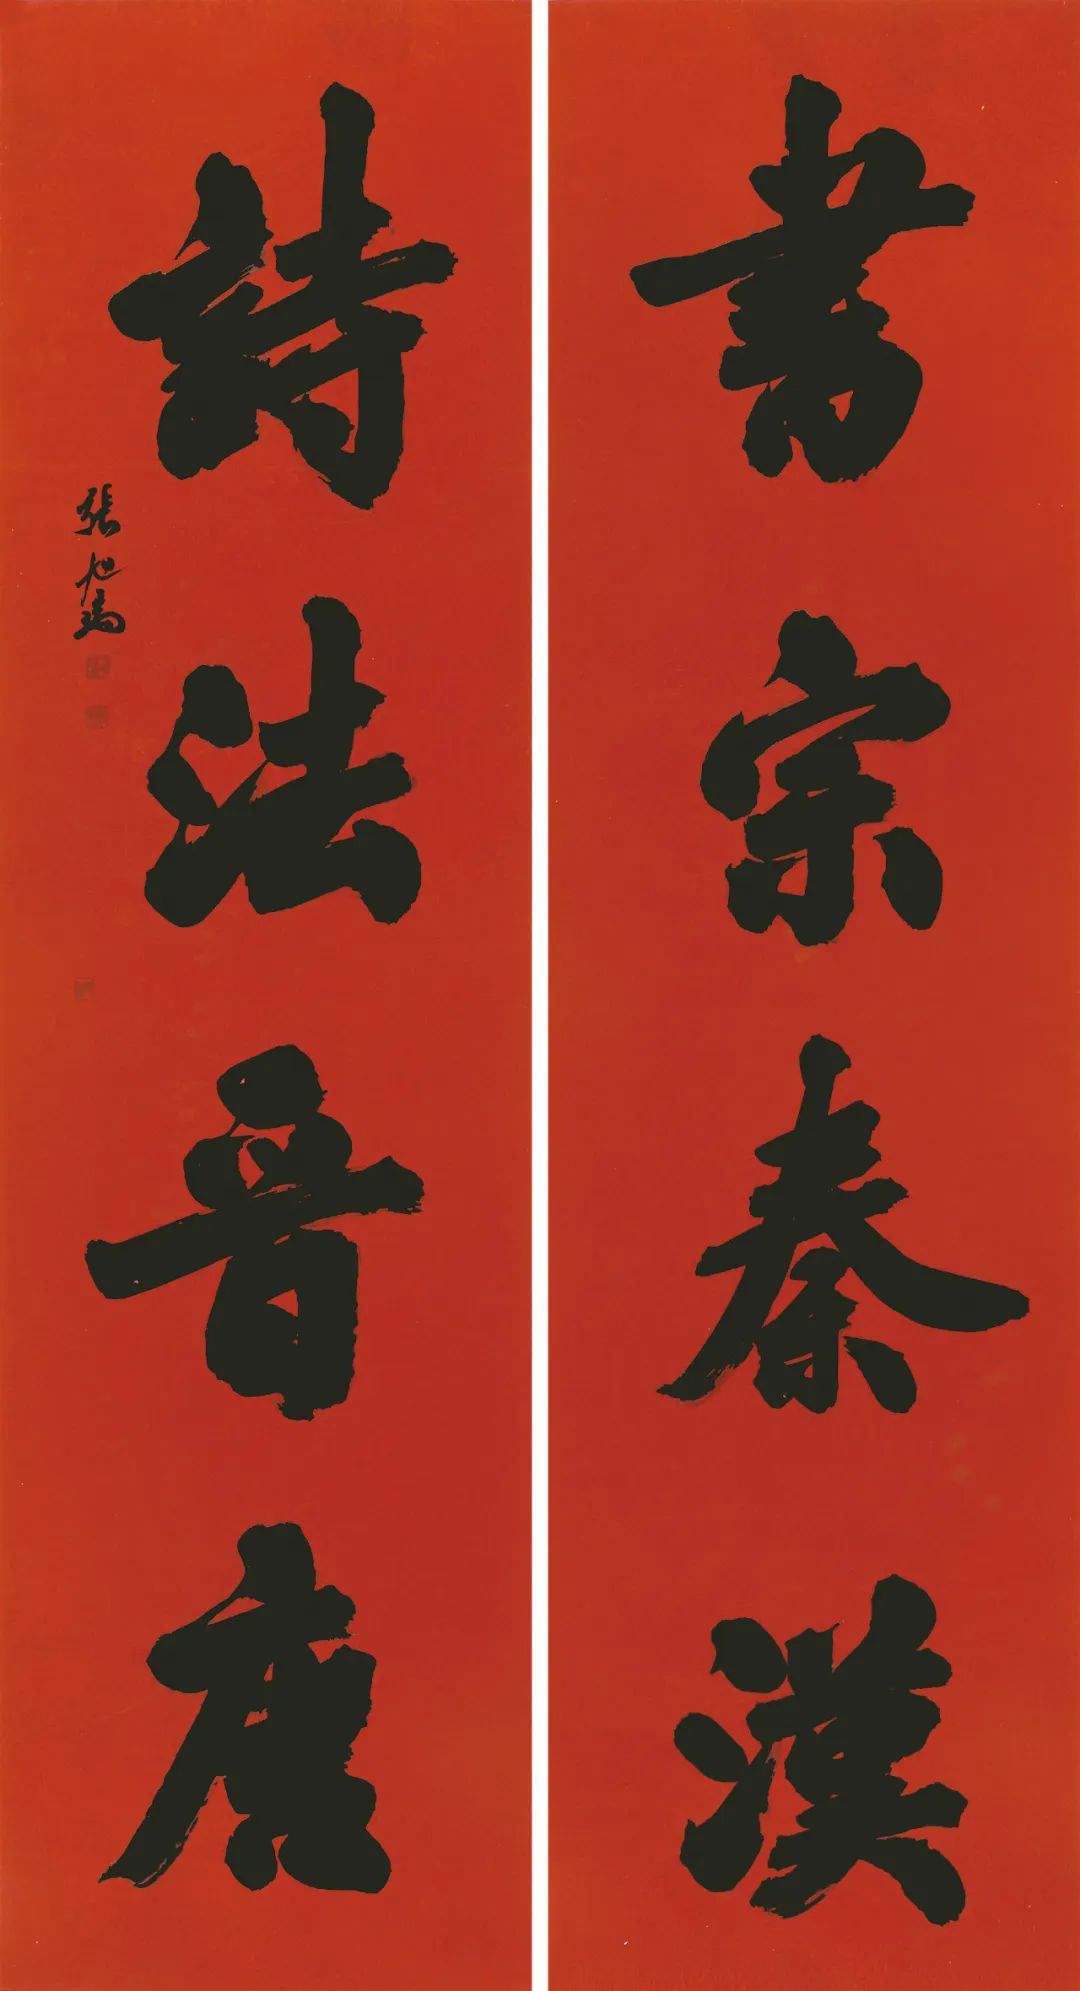 書宗秦漢
詩法晉唐
張旭